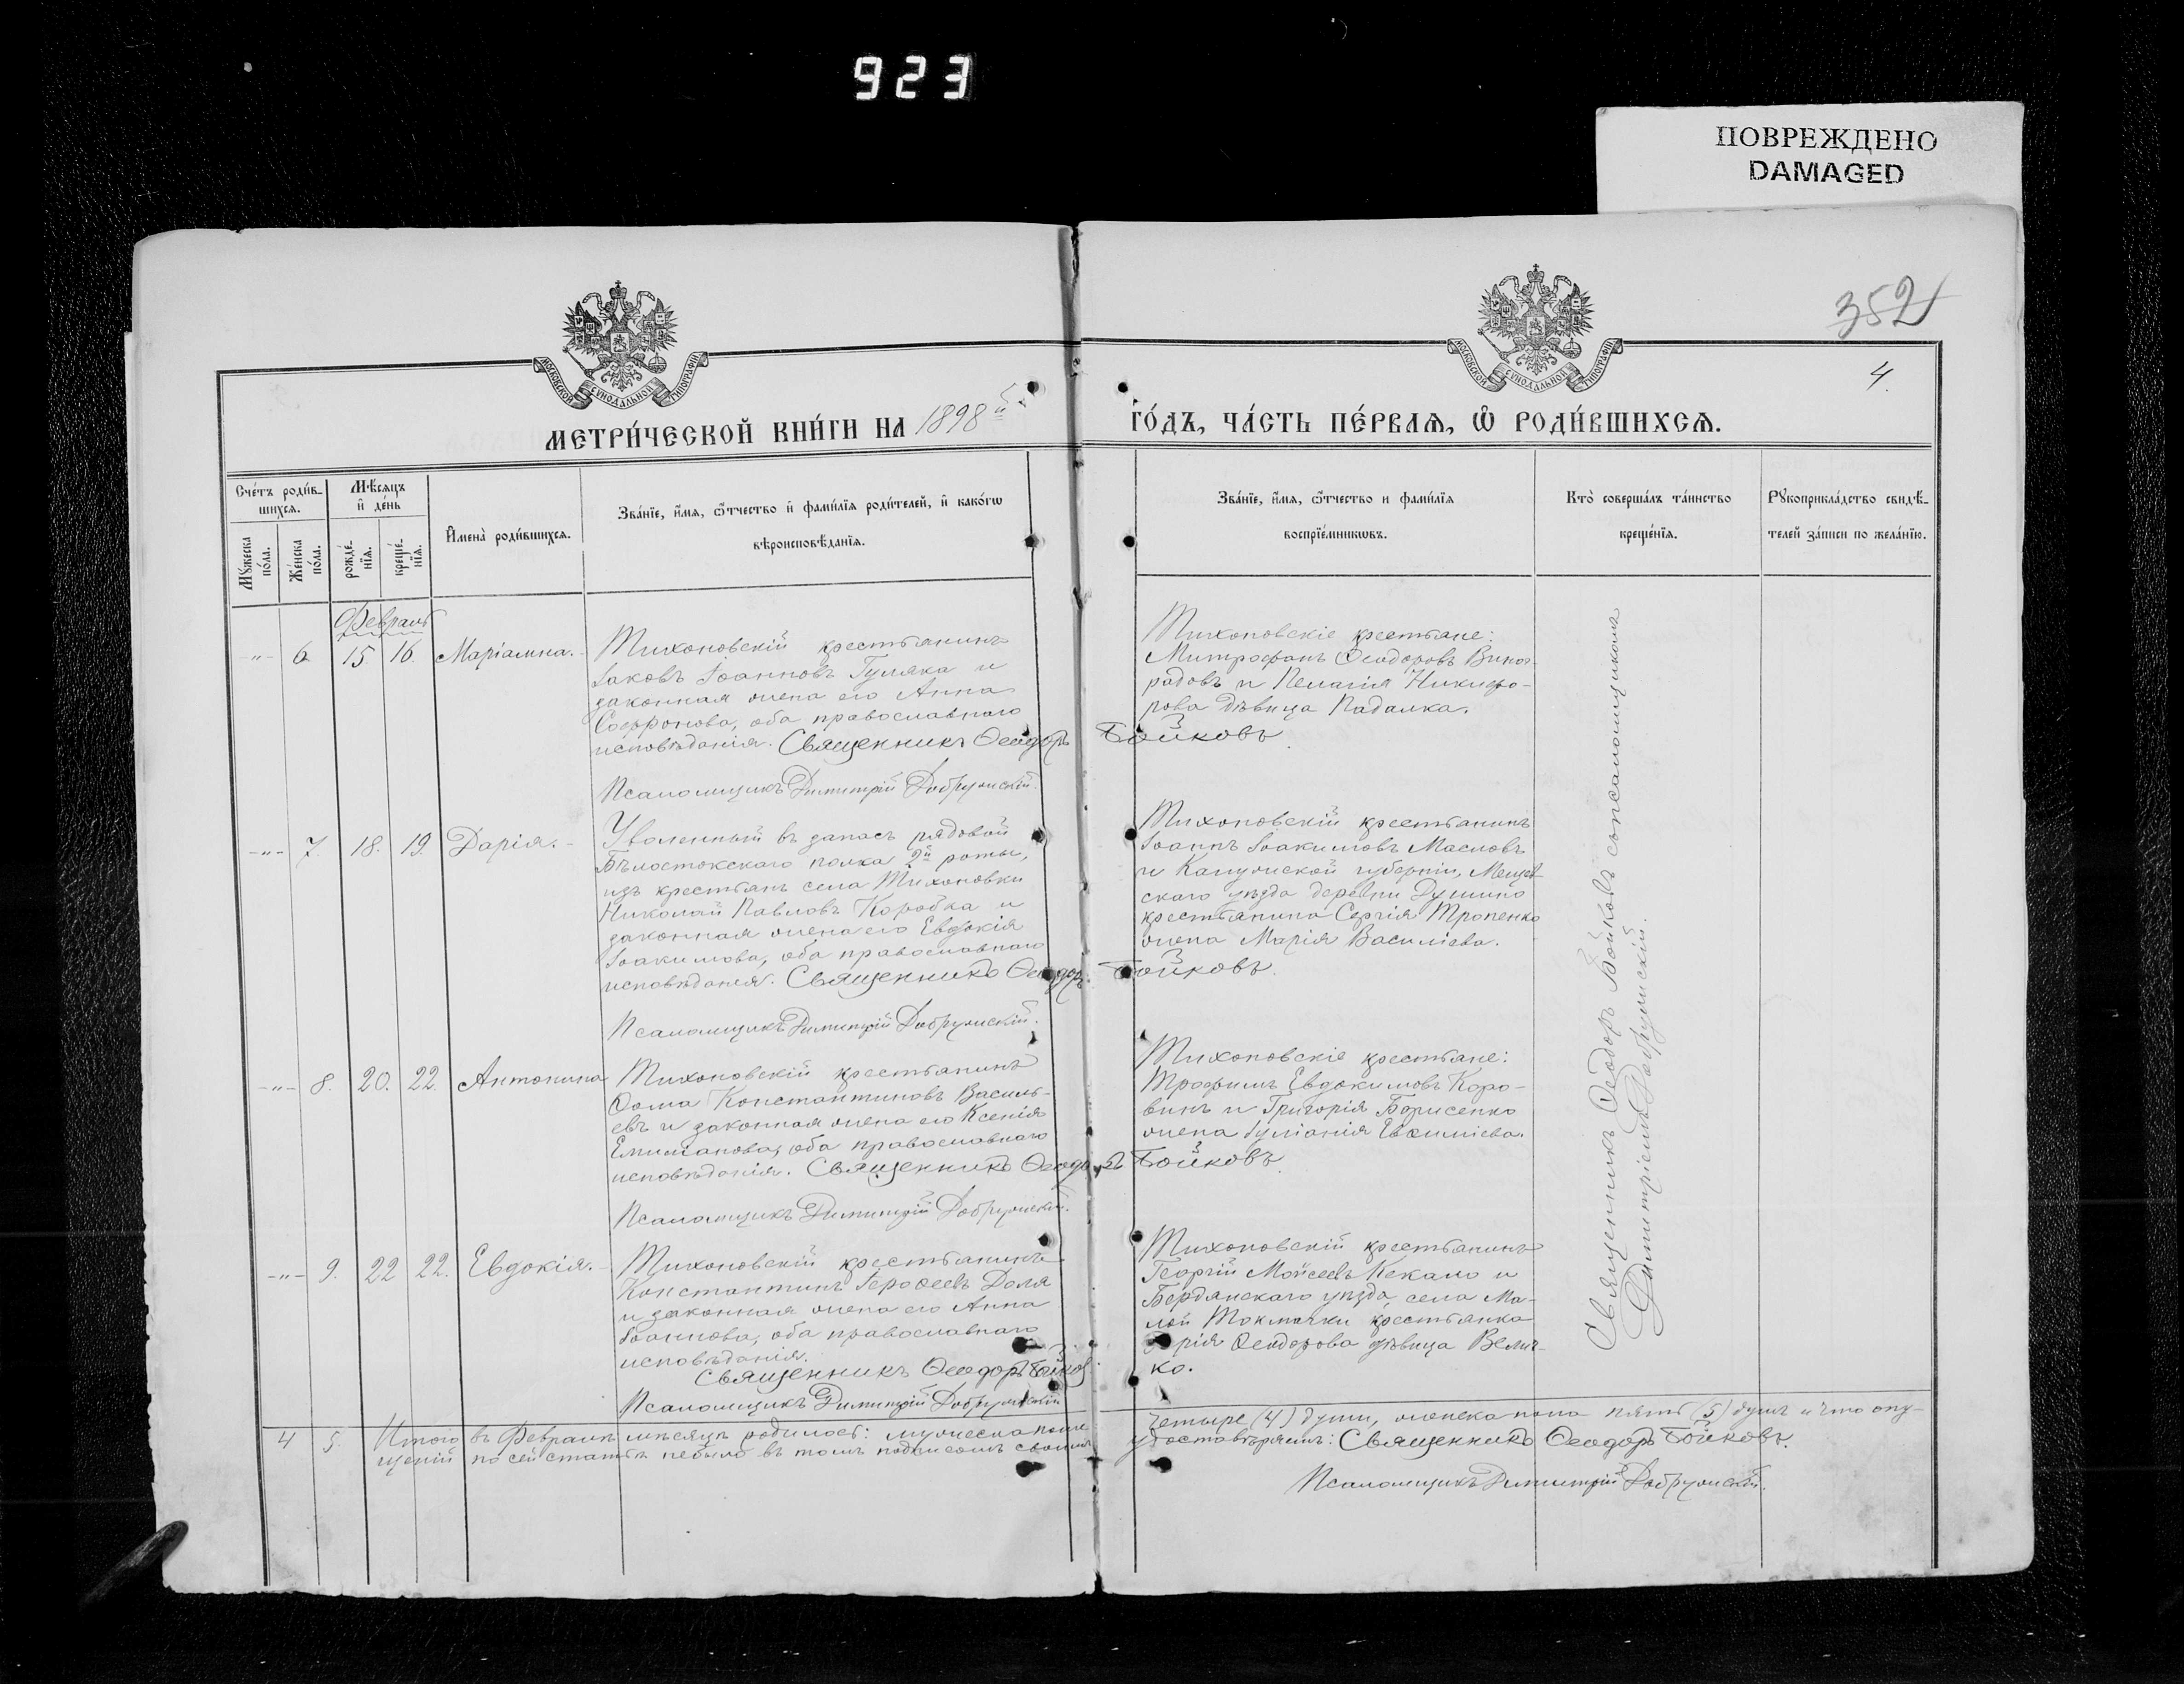 923
ПОВРЕЖДЕНО
DAMAGED
352
4.
МОСКОВСКОЙ СУНОДАЛЬНОЙ ТИПОГРАФІИ
МОСКОВСКОЙ СУНОДАЛЬНОЙ ТИПОГРАФІИ
МЕТРИ́ЧЕСКОЙ КНИ́ГИ НА 1898й
ГО́ДЪ, ЧА́СТЬ ПЕ́РВАЯ, Ѡ РОДИ́ВШИХСЯ.
Сче́тъ роди́в-
шихся.
Му́жеска по́ла.
Же́нска по́ла.
Мѣ́сяцъ
и҆ де́нь
рожде́-
нїя.
креще́-
нїя.
И҆мена̀ роди́вшихся.
Зва́нїе, и҆́мя, ѻ҆́тчество и҆ фами́лїя роди́телей, и҆ како́гѡ
вѣроисповѣ́данїя.
Зва́нїе, и҆́мя, ѻ҆́тчество и фами́лїя
воспрїе́мникѡвъ.
Кто̀ соверша́лъ та́инство
креще́нїя.
Рꙋкоприкла́дство свидѣ́-
телей за́писи по жела́нїю.
Февраль
-"- 6. 15. 16. Маріамна.
Тихоновскій крестьянинъ
Іаковъ Іоанновъ Гуляка и
законная жена его Анна
Софронова, оба православнаго
исповѣданія. Священникъ Ѳеодоръ Бойковъ
Псаломщикъ Димитрій Добружскій.
Тихоновскіе крестьяне:
Митрофанъ Ѳеодоровъ Виног-
радовъ и Пелагія Никифо-
рова дѣвица Падалка.
-"- 7. 18. 19. Дарія.
Уволенный въ запасъ рядовой
Бѣлостокскаго полка 2й роты,
изъ крестьянъ села Тихоновки
Николай Павловъ Коробка и
законная жена его Евдокія
Іоакимова, оба православнаго
исповѣданія. Священникъ Ѳеодоръ Бойковъ.
Псаломщикъ Димитрій Добружскій.
Тихоновскій крестьянинъ
Іоаннъ Іоакимовъ Масловъ
и Калужской губерніи, Мещев-
скаго уѣзда деревни Душино
крестьянина Сергія Тропенко
жена Марія Василіева.
-"- 8. 20. 22. Антонина
Тихоновскій крестьянинъ
Ѳома Константиновъ Василь-
евъ и законная жена его Ксенія
Емиліанова, оба православнаго
исповѣданія. Священникъ Ѳеодоръ Бойковъ.
Псаломщикъ Димитрій Добружскій.
Тихоновскіе крестьяне:
Трофимъ Евдокимовъ Коро-
винъ и Григорія Борисенко
жена Іуліанія Евѳиміева.
-"- 9. 22 22. Евдокія.
Тихоновскій крестьянинъ
Константинъ Іероѳеевъ Доля
и законная жена его Анна
Іоаннова, оба православнаго
исповѣданія.
Священникъ Ѳеодоръ Бойковъ
Псаломщикъ Димитрій Добружскій
Тихоновскій крестьянинъ
Георгій Моѵсеевъ Кекало и
Бердянскаго уѣзда, села Ма-
лой Токмачки крестьянка
рія Ѳеодорова дѣвица Велич-
ко.
Священникъ Ѳеодоръ Бойковъ сопсаломщикомъ
Димитріемъ Добружскій.
4 5. Итого въ Февралѣ мѣсяцѣ родилось: мужеска пола четыре (4) души, женска пола пять (5) душъ и что опу-
щеній по сей статьѣ небыло въ томъ подписомъ своимъ удостовѣряемъ: Священникъ Ѳеодоръ Бойковъ.
Псаломщикъ Димитрій Добружскій.